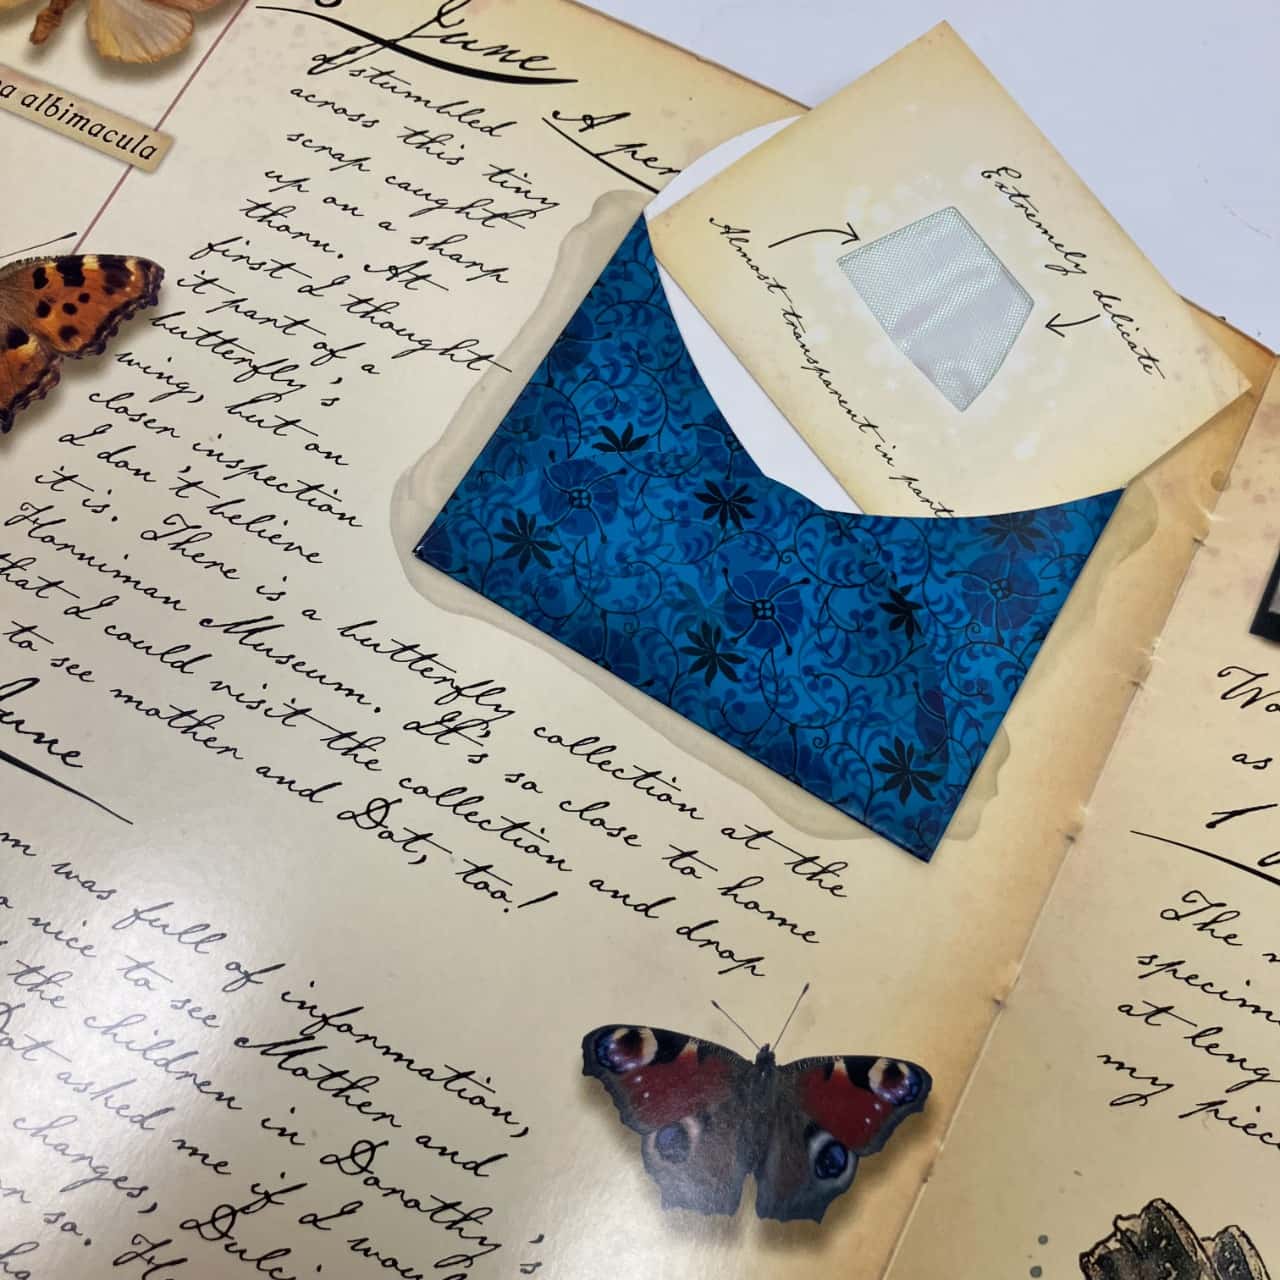 albimacula
June
I stumbled
across this tiny
scrap caught
up on a sharp
thorn. At
first I thought
it part of a
butterfly's
wing, but on
closer inspection
I don't believe
it is. There is a butterfly collection at the
Horniman Museum. It's so close to home
that I could visit the collection and drop
to see mother and Dot, too!
A
Extremely delicate
Almost transparent in part
June
was full of information,
nice to see Mother and
the children in Dorothy's
Dot asked me if I
changes,
so.
as
The
at
my